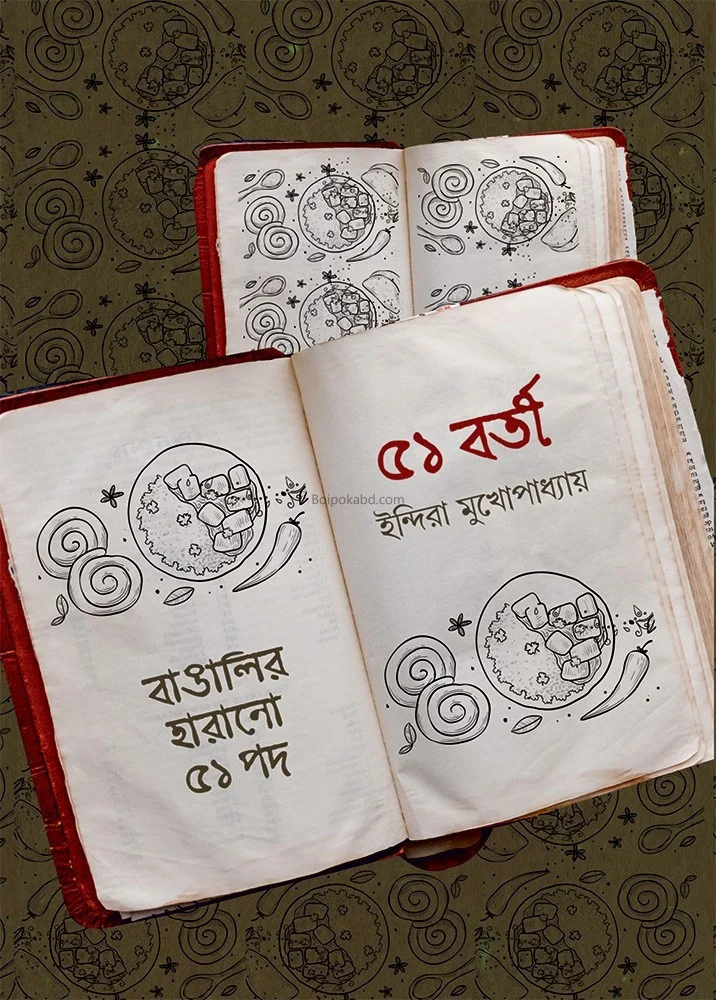 ৫১ বর্তী
ইন্দিরা মুখোপাধ্যায়
Boipokabd.com
বাঙালির
হারানো
৫১ পদ